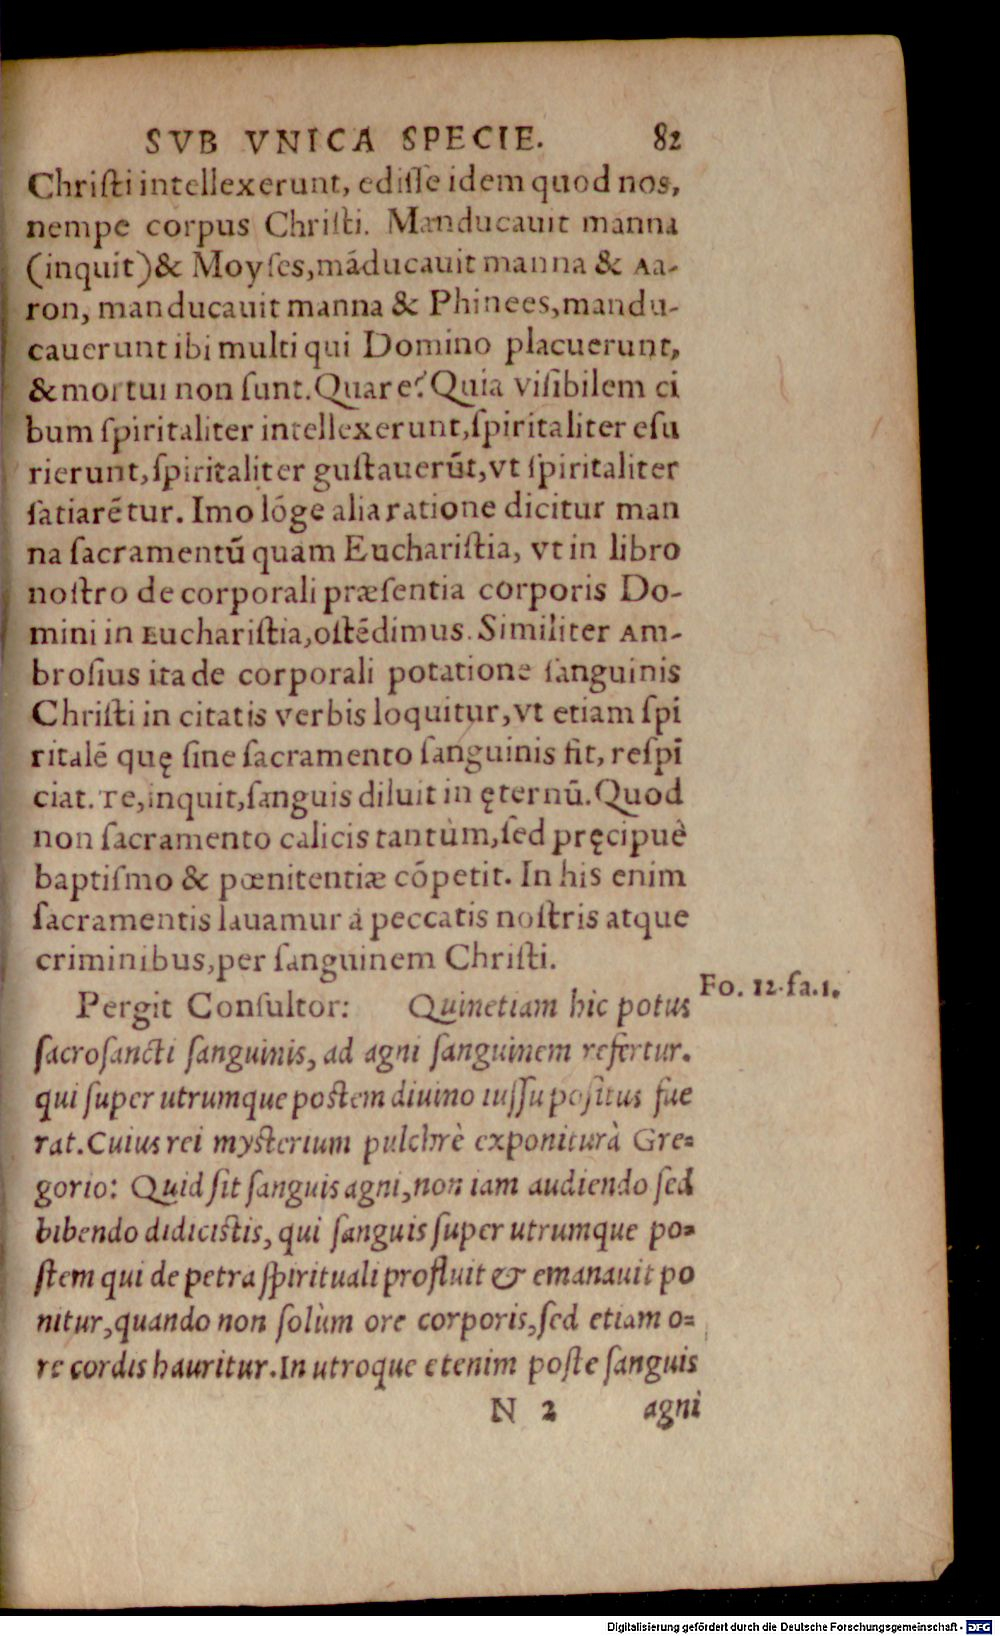 SVB VNICA SPECIE. 82
Chriſti intellexerunt, ediſſe idem quod nos,
nempe corpus Chriſti. Manducauit manna
(inquit)& Moyſes,māducauit manna & Aa-
ron, manducauit manna & Phinees,mandu-
cauerunt ibi multi qui Domino placuerunt,
& mortui non ſunt. Quare? Quia viſibilem ci
bum ſpiritaliter intellexerunt,ſpiritaliter eſu
rierunt,ſpiritaliter guſtauerūt,vt ſpiritaliter
ſatiarētur. Imo lōge alia ratione dicitur man
na ſacramentū quam Euchariſtia, vt in libro
noſtro de corporali præſentia corporis Do-
mini in Euchariſtia,oſtēdimus. Similiter Am-
broſius ita de corporali potatione ſanguinis
Chriſti in citatis verbis loquitur,vt etiam ſpi
ritalē quę ſine ſacramento ſanguinis fit, reſpi
ciat. Te,inquit,ſanguis diluit in ęternū. Quod
non ſacramento calicis tantùm,ſed pręcipuè
baptiſmo & pœnitentiæ cōpetit. In his enim
ſacramentis lauamur à peccatis noſtris atque
criminibus,per ſanguinem Chriſti.
Pergit Conſultor: Quinetiam hic potus
Fo. 12.fa.1.
ſacroſancti ſanguinis, ad agni ſanguinem refertur.
qui ſuper utrumque poſtem diuino iuſſu poſitus fue
rat. Cuius rei myſterium pulchrè exponitur à Gre-
gorio: Quid ſit ſanguis agni,non iam audiendo ſed
bibendo didiciſtis, qui ſanguis ſuper utrumque po-
ſtem qui de petra ſpirituali profluit & emanauit po
nitur,quando non ſolùm ore corporis,ſed etiam o-
re cordis hauritur. In utroque etenim poſte ſanguis
N 2 agni
Digitalisierung gefördert durch die Deutsche Forschungsgemeinschaft - DFG